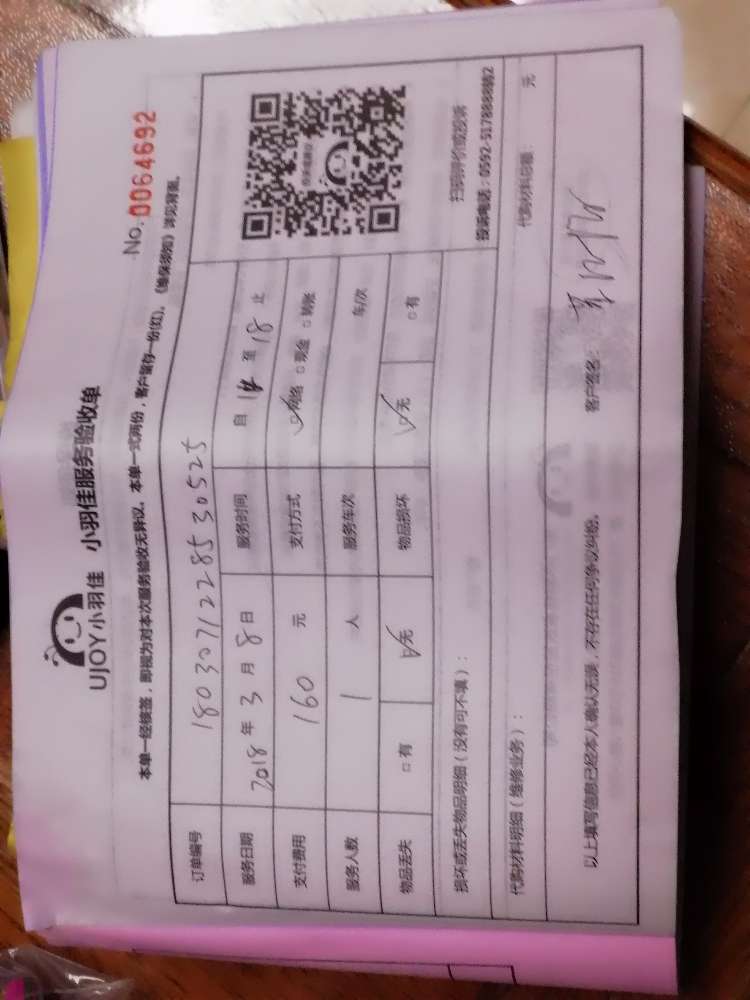 UJOY小羽佳 小羽佳服务验收单
No. 0064692
本单一经核签，即视为对本次服务验收无异议。本单一式两份，客户留存一份(红)。《维保须知》详见背面。
订单编号 180307122853 0525
服务日期 2018 年 3 月 8 日 服务时间 自 14 至 18 止
支付费用 160 元 支付方式 ☑网络 □现金 □转账
服务人数 1 人 服务车次 车/次
物品丢失 □有 ☑无 物品损坏 ☑无 □有
扫码评价或投诉
投诉电话：0592-5178888转2
损坏或丢失物品明细（没有可不填）：
代购材料明细（维修业务）： 代购材料总额： 元
以上填写信息已经本人确认无误，不存在任何争议纠纷。 客户签名：